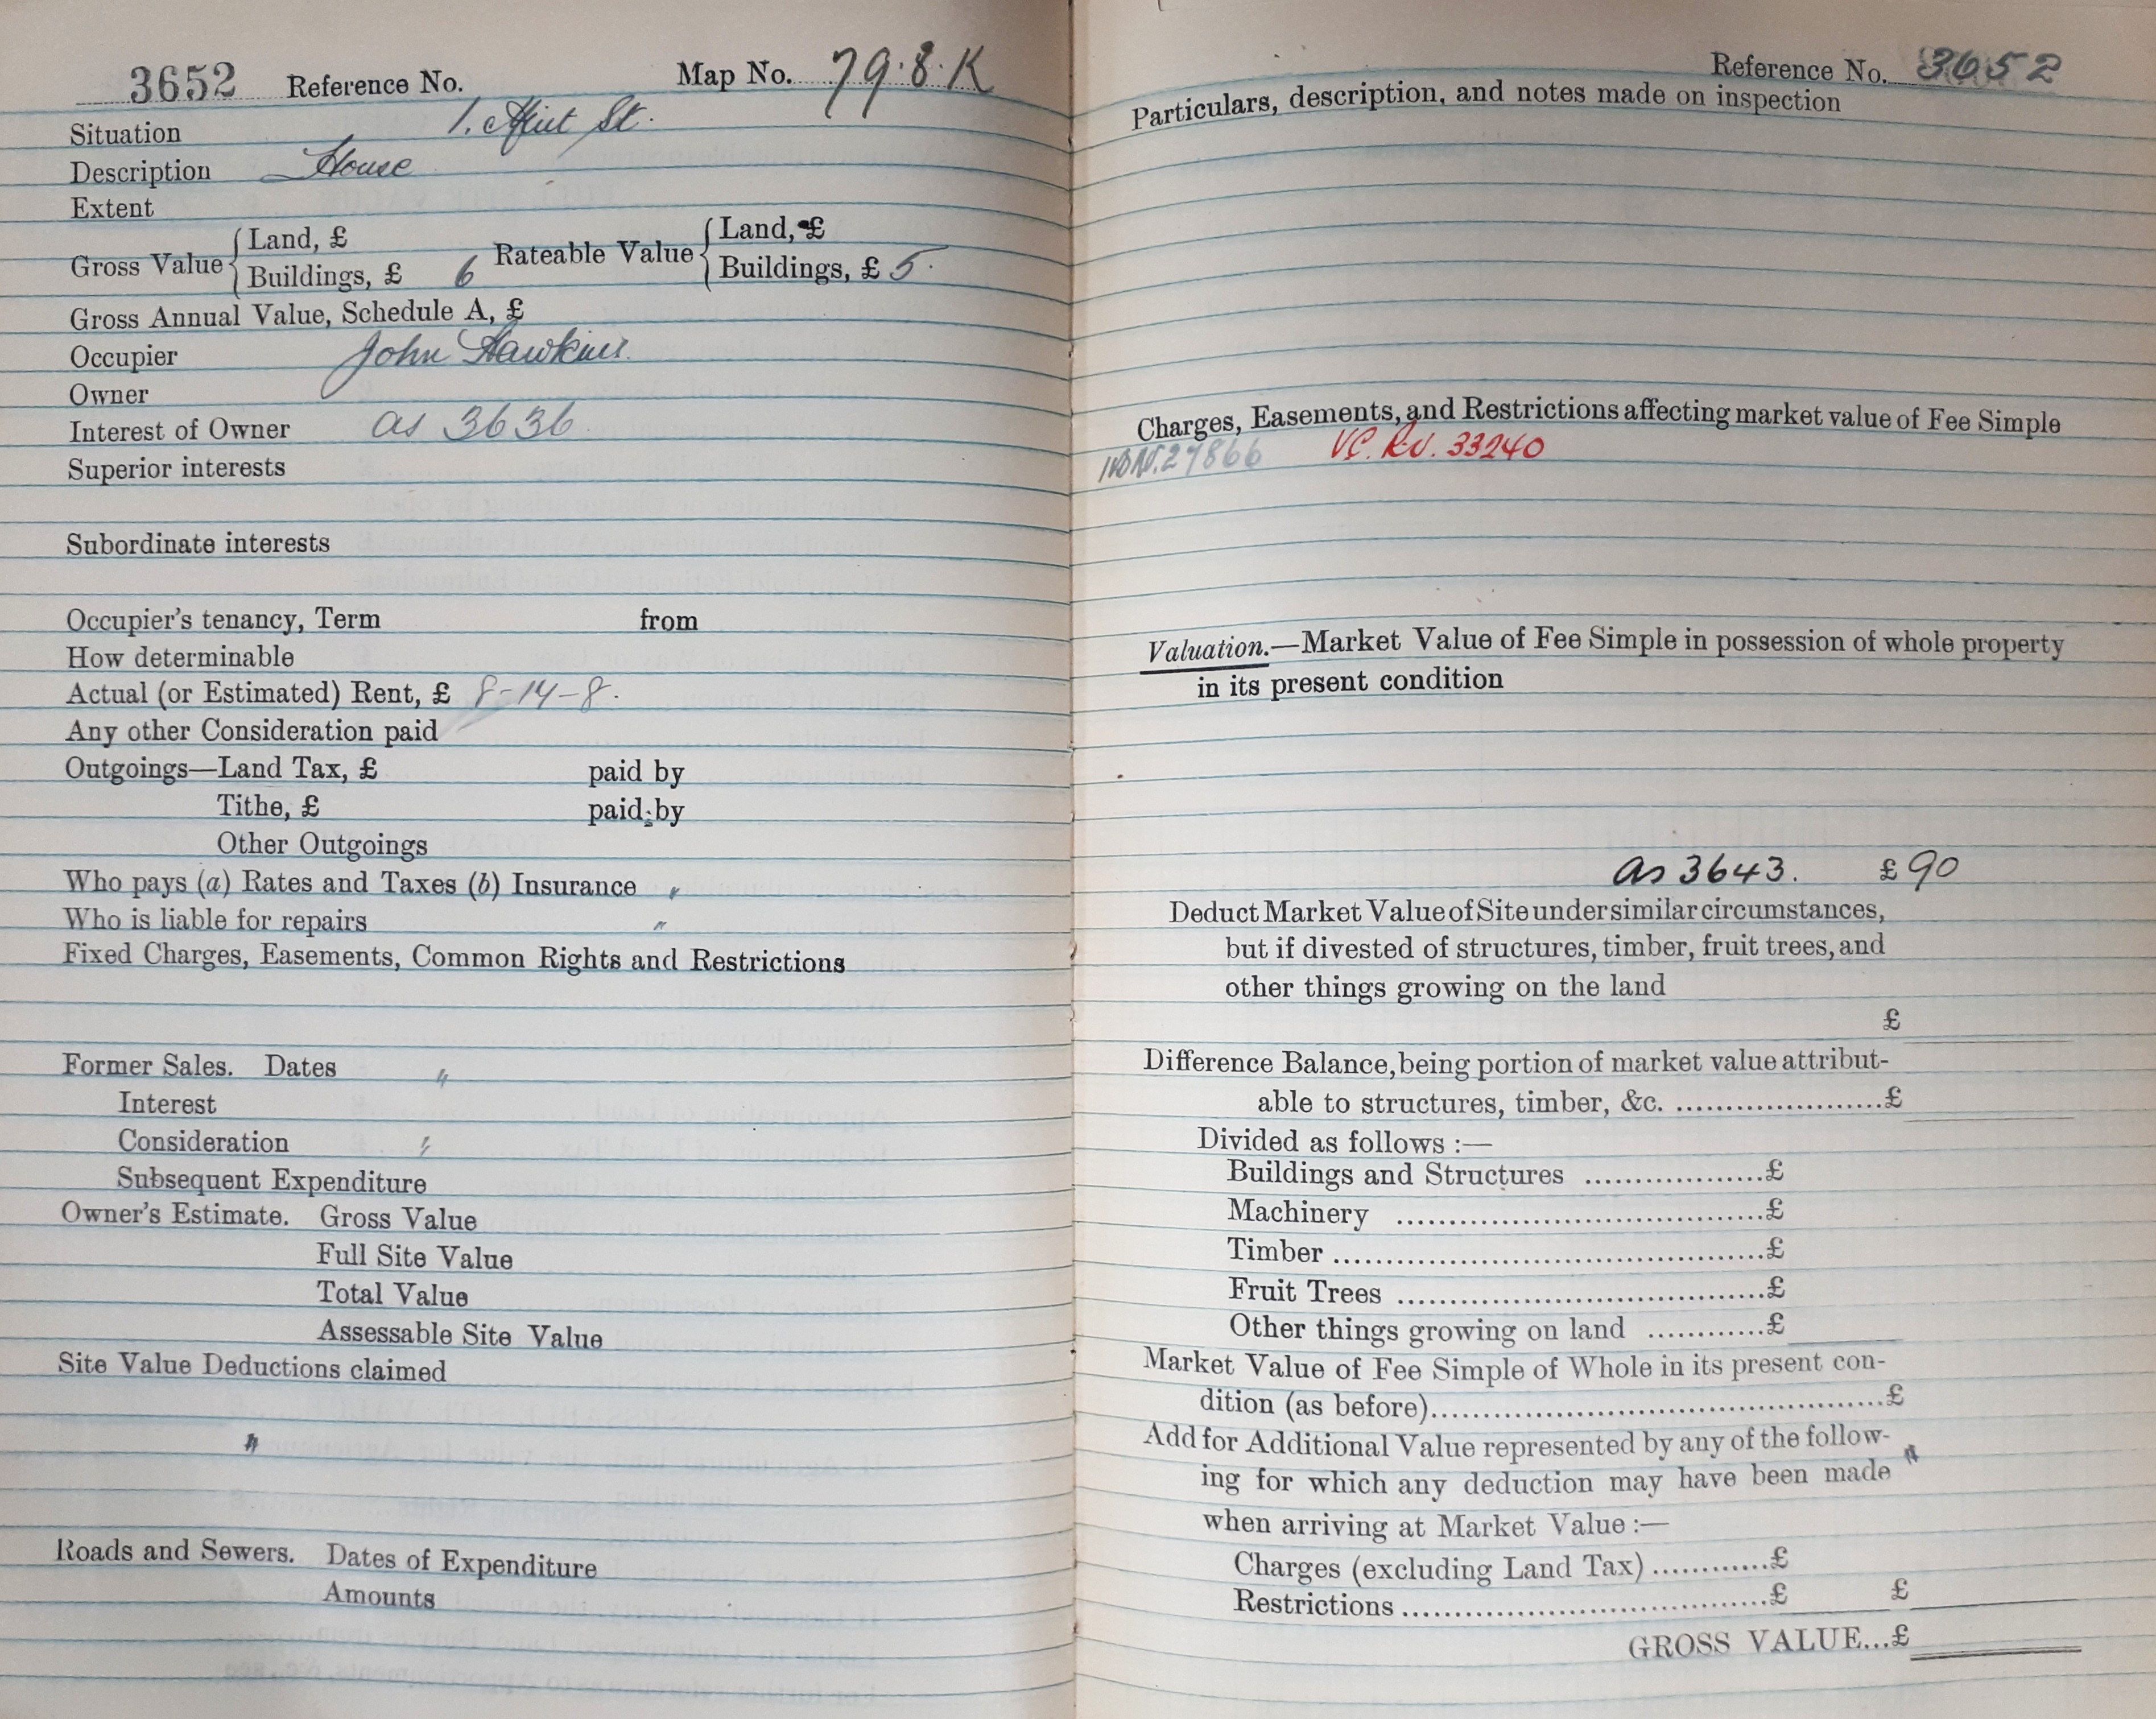 3652 Reference No. Map No. 79.8.K
Situation 1. St.
Description House
Extent
Gross Value { Land, £
Buildings, £ 6
Rateable Value { Land, £
Buildings, £ 5.
Gross Annual Value, Schedule A, £
Occupier John Hawkins.
Owner
Interest of Owner as 3636
Superior interests
Subordinate interests
Occupier's tenancy, Term from
How determinable
Actual (or Estimated) Rent, £ 8-14-8.
Any other Consideration paid
Outgoings—Land Tax, £ paid by
Tithe, £ paid by
Other Outgoings
Who pays (a) Rates and Taxes (b) Insurance "
Who is liable for repairs "
Fixed Charges, Easements, Common Rights and Restrictions
Former Sales. Dates "
Interest
Consideration "
Subsequent Expenditure
Owner's Estimate. Gross Value
Full Site Value
Total Value
Assessable Site Value
Site Value Deductions claimed
"
Roads and Sewers. Dates of Expenditure
Amounts
Reference No. 3652
Particulars, description, and notes made on inspection
Charges, Easements, and Restrictions affecting market value of Fee Simple
27866 VC. RV. 33240
Valuation.—Market Value of Fee Simple in possession of whole property
in its present condition
as 3643. £90
Deduct Market Value of Site under similar circumstances,
but if divested of structures, timber, fruit trees, and
other things growing on the land
£
Difference Balance, being portion of market value attribut-
able to structures, timber, &c. ......................£
Divided as follows :—
Buildings and Structures ...................£
Machinery .......................................£
Timber .............................................£
Fruit Trees .......................................£
Other things growing on land ............£
Market Value of Fee Simple of Whole in its present con-
dition (as before)................................................£
Add for Additional Value represented by any of the follow- "
ing for which any deduction may have been made
when arriving at Market Value :—
Charges (excluding Land Tax) ............£
Restrictions ......................................£ £
GROSS VALUE...£